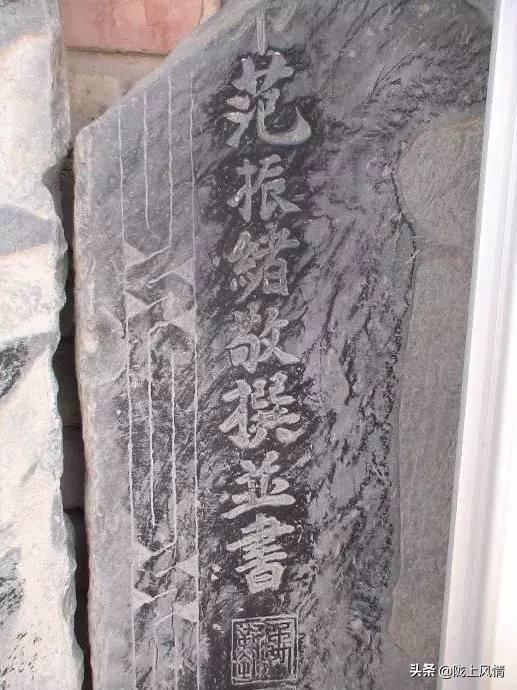 范振緒敬撰並書
头条 @陇上风情